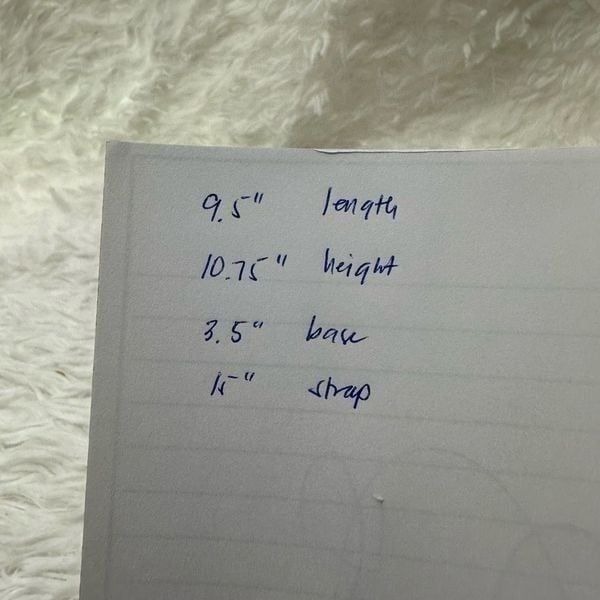 9.5" length
10.75" height
3.5" base
15" strap